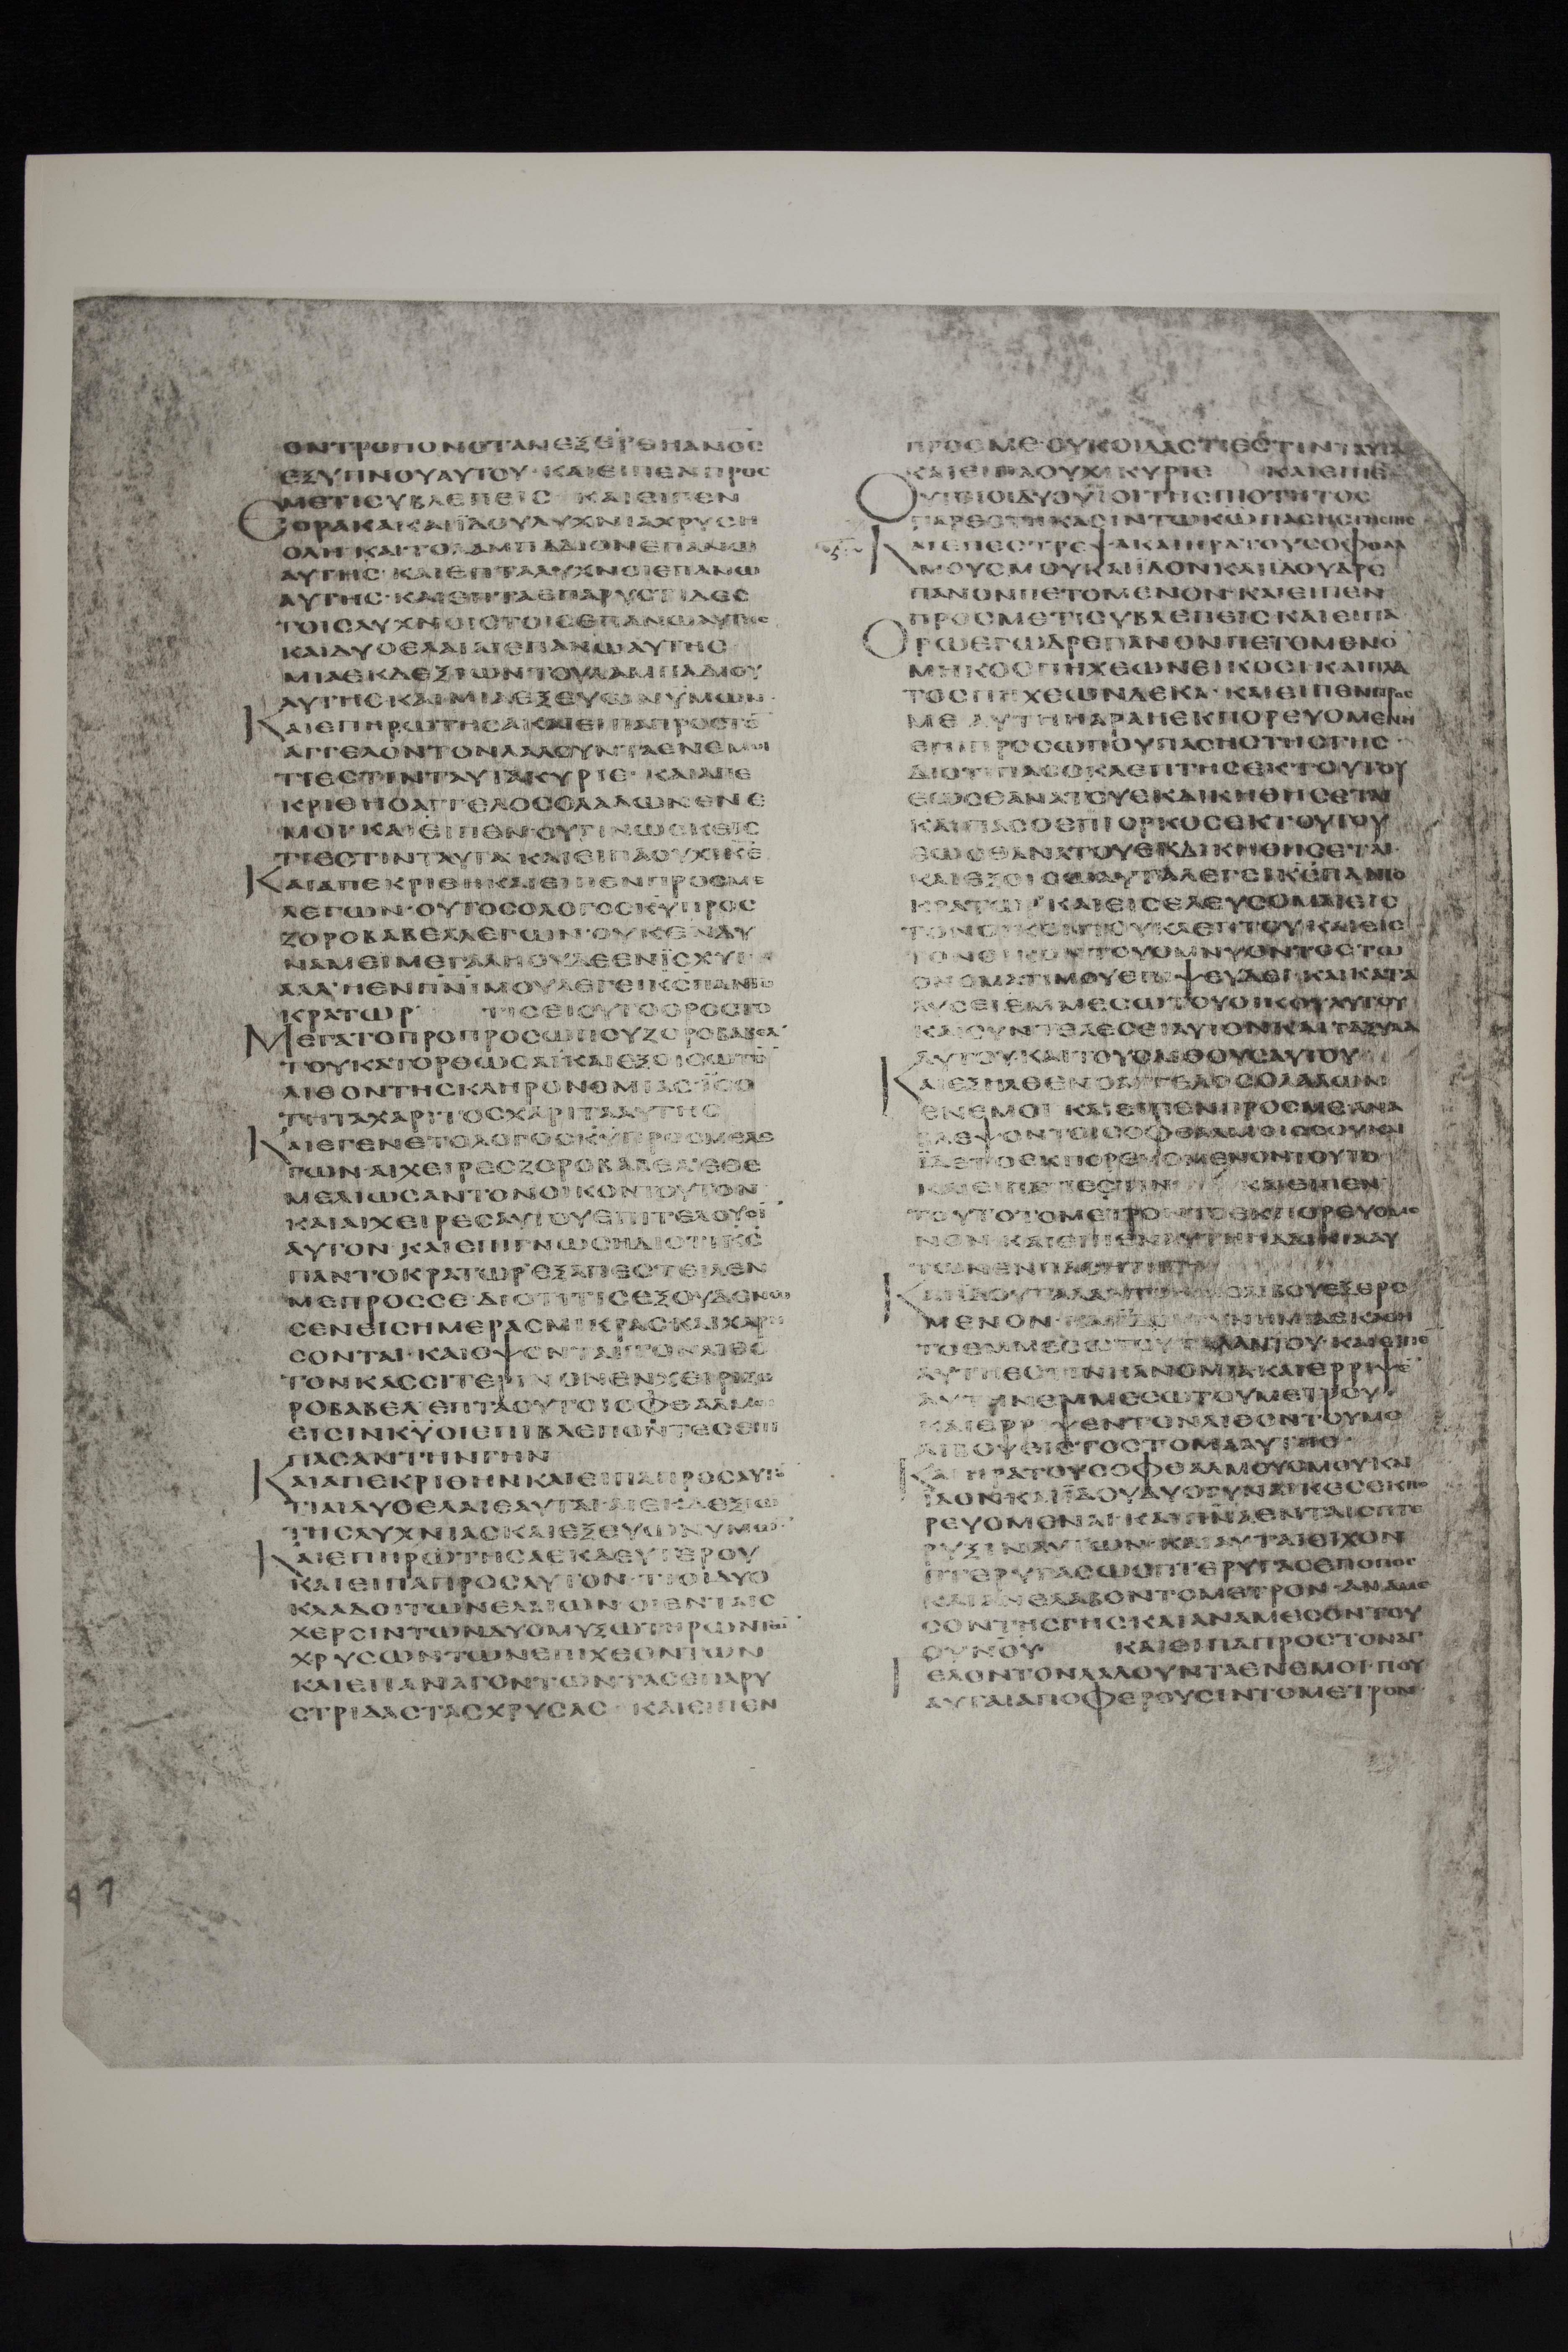 ΟΝΤΡΟΠΟΝΟΤΑΝΕΞΕΡΘΗΑΝΟС
ΕΞΥΠΝΟΥΑΥΤΟΥ·ΚΑΙΕΙΠΕΝΠΡΟС
ΜΕΤΙСΥΒΛΕΠΕΙС ΚΑΙΕΙΠΕΝ
ΕΟΡΑΚΑΚΑΙΪΔΟΥΛΥΧΝΙΑΧΡΥСΗ
ΟΛΗ·ΚΑΙΤΟΛΑΜΠΑΔΙΟΝΕΠΑΝΩ
ΑΥΤΗС·ΚΑΙΕΠΤΑΛΥΧΝΟΙΕΠΑΝΩ
ΑΥΤΗС·ΚΑΙΕΠΤΑΕΠΑΡΥСΤΙΔΕС
ΤΟΙСΛΥΧΝΟΙСΤΟΙСΕΠΑΝΩΑΥΤΗС
ΚΑΙΔΥΟΕΛΑΙΑΙΕΠΑΝΩΑΥΤΗС
ΜΙΑΕΚΔΕΞΙΩΝΤΟΥΛΑΜΠΑΔΙΟΥ
ΑΥΤΗСΚΑΙΜΙΑΕΞΕΥΩΝΥΜΩΝ·
ΚΑΙΕΠΗΡΩΤΗСΑΚΑΙΕΙΠΑΠΡΟСΤΟ̅
ΑΓΓΕΛΟΝΤΟΝΛΑΛΟΥΝΤΑΕΝΕΜΟΙ
ΤΙΕСΤΙΝΤΑΥΤΑΚΥΡΙΕ·ΚΑΙΑΠΕ
ΚΡΙΘΗΟΑΓΓΕΛΟСΟΛΑΛΩΝΕΝΕ
ΜΟΙ·ΚΑΙΕΙΠΕΝ·ΟΥΓΙΝΩСΚΕΙС
ΤΙΕСΤΙΝΤΑΥΤΑ·ΚΑΙΕΙΠΑΟΥΧΙΚ̅Ε̅
ΚΑΙΑΠΕΚΡΙΘΗΚΑΙΕΙΠΕΝΠΡΟСΜΕ
ΛΕΓΩΝ·ΟΥΤΟСΟΛΟΓΟСΚ̅Υ̅ΠΡΟС
ΖΟΡΟΒΑΒΕΛΛΕΓΩΝ·ΟΥΚΕΝΔΥ
ΝΑΜΕΙΜΕΓΑΛΗΟΥΔΕΕΝΪСΧΥΙ
ΑΛΛ'ΗΕΝΠ̅Ν̅Ι̅ΜΟΥΛΕΓΕΙΚ̅С̅ΠΑΝΤΟ
ΚΡΑΤΩΡ· ΤΙСΕΙСΥΤΟΟΡΟСΤΟ
ΜΕΓΑΤΟΠΡΟΠΡΟСΩΠΟΥΖΟΡΟΒΑΒΕΛ
ΤΟΥΚΑΤΟΡΘΩСΑΙ·ΚΑΙΕΞΟΙСΩΤΟ̅
ΛΙΘΟΝΤΗСΚΛΗΡΟΝΟΜΙΑС·ΪСΟ
ΤΗΤΑΧΑΡΙΤΟСΧΑΡΙΤΑΑΥΤΗС
ΚΑΙΕΓΕΝΕΤΟΛΟΓΟСΚ̅Υ̅ΠΡΟСΜΕΛΕ
ΓΩΝ·ΑΙΧΕΙΡΕСΖΟΡΟΒΑΒΕΛ'ΕΘΕ
ΜΕΛΙΩСΑΝΤΟΝΟΙΚΟΝΤΟΥΤΟΝ
ΚΑΙΑΙΧΕΙΡΕСΑΥΤΟΥΕΠΙΤΕΛΟΥСΙ
ΑΥΤΟΝ·ΚΑΙΕΠΙΓΝΩСΗΔΙΟΤΙΚ̅С̅
ΠΑΝΤΟΚΡΑΤΩΡ'ΕΞΑΠΕСΤΕΙΛΕΝ
ΜΕΠΡΟССΕ·ΔΙΟΤΙΤΙСΕΞΟΥΔΕΝΩ
СΕΝΕΙСΗΜΕΡΑСΜΙΚΡΑСΚΑΙΧΑΡΟΥ
СΟΝΤΑΙ·ΚΑΙΟΨΟΝΤΑΙΤΟΝΛΙΘΟ̅
ΤΟΝΚΑССΙΤΕΡΙΝΟΝΕΝΧΕΙΡΙΖΟ
ΡΟΒΑΒΕΛ'ΕΠΤΑΟΥΤΟΙΟΦΘΑΛΜΟΙ
ΕΙСΙΝΚ̅Υ̅ΟΙΕΠΙΒΛΕΠΟΝΤΕСΕΠΙ
ΠΑСΑΝΤΗΝΓΗΝ
ΚΑΙΑΠΕΚΡΙΘΗΝΚΑΙΕΙΠΑΠΡΟСΑΥΤΟ̅
ΤΙΑΙΔΥΟΕΛΑΙΑΙΑΥΤΑΙ·ΑΙΕΚΔΕΞΙΩ̅
ΤΗСΛΥΧΝΙΑСΚΑΙΕΞΕΥΩΝΥΜΩ̅
ΚΑΙΕΠΗΡΩΤΗСΑΕΚΔΕΥΤΕΡΟΥ
ΚΑΙΕΙΠΑΠΡΟСΑΥΤΟΝ·ΤΙΟΙΔΥΟ
ΚΛΑΔΟΙΤΩΝΕΛΑΙΩΝ·ΟΙΕΝΤΑΙС
ΧΕΡСΙΝΤΩΝΔΥΟΜΥΞΩΤΗΡΩΝΤΩ̅
ΧΡΥСΩΝΤΩΝΕΠΙΧΕΟΝΤΩΝ
ΚΑΙΕΠΑΝΑΓΟΝΤΩΝΤΑСΕΠΑΡΥ
СΤΡΙΔΑСΤΑСΧΡΥСΑС·ΚΑΙΕΙΠΕΝ
ΠΡΟСΜΕ·ΟΥΚΟΙΔΑСΤΙΕСΤΙΝΤΑΥΤΑ
ΚΑΙΕΙΠΑΟΥΧΙΚΥΡΙΕ ΚΑΙΕΙΠΕ
ΟΥΤΟΙΟΙΔΥΟΥΪΟΙΤΗСΠΙΟΤΗΤΟС
ΠΑΡΕСΤΗΚΑСΙΝΤΩΚ̅Ω̅ΠΑСΗСΤΗСΓΗС
ΚΑΙΕΠΕСΤΡΕΨΑΚΑΙΗΡΑΤΟΥСΟΦΘΑΛ
ΜΟΥСΜΟΥΚΑΙΪΔΟΝΚΑΙΪΔΟΥΔΡΕ
ΠΑΝΟΝΠΕΤΟΜΕΝΟΝ·ΚΑΙΕΙΠΕΝ
ΠΡΟСΜΕΤΙСΥΒΛΕΠΕΙСΚΑΙΕΙΠΑ
ΟΡΩΕΓΩΔΡΕΠΑΝΟΝΠΕΤΟΜΕΝΟ̅
ΜΗΚΟСΠΗΧΕΩΝΕΙΚΟСΙ·ΚΑΙΠΛΑ
ΤΟСΠΗΧΕΩΝΔΕΚΑ·ΚΑΙΕΙΠΕΝΠΡΟС
ΜΕ ΑΥΤΗΗΑΡΑΗΕΚΠΟΡΕΥΟΜΕΝΗ
ΕΠΙΠΡΟСΩΠΟΥΠΑСΗСΤΗСΓΗС·
ΔΙΟΤΙΠΑСΟΚΛΕΠΤΗСΕΚΤΟΥΤΟΥ
ΕΩСΘΑΝΑΤΟΥΕΚΔΙΚΗΘΗСΕΤΑΙ
ΚΑΙΠΑСΟΕΠΙΟΡΚΟСΕΚΤΟΥΤΟΥ
ΕΩСΘΑΝΑΤΟΥΕΚΔΙΚΗΘΗСΕΤΑΙ·
ΚΑΙΕΞΟΙСΩΑΥΤΑΛΕΓΕΙΚ̅С̅ΠΑΝΤΟ
ΚΡΑΤΩΡ'ΚΑΙΕΙСΕΛΕΥСΟΜΑΙΕΙС
ΤΟΝΟΙΚΟΝΤΟΥΚΛΕΠΤΟΥΚΑΙΕΙС
ΤΟΝΟΙΚΟΝΤΟΥΟΜΝΥΟΝΤΟСΤΩ
ΟΝΟΜΑΤΙΜΟΥΕΠΙΨΕΥΔΕΙ·ΚΑΙΚΑΤΑ
ΛΥСΕΙΕΜΜΕСΩΤΟΥΟΙΚΟΥΑΥΤΟΥ
ΚΑΙСΥΝΤΕΛΕСΕΙΑΥΤΟΝΚΑΙΤΑΞΥΛΑ
ΑΥΤΟΥΚΑΙΤΟΥСΛΙΘΟΥСΑΥΤΟΥ
ΚΑΙΕΞΗΛΘΕΝΟΑΓΓΕΛΟСΟΛΑΛΩΝ
ΕΝΕΜΟΙ ΚΑΙΕΙΠΕΝΠΡΟСΜΕΑΝΑ
ΒΛΕΨΟΝΤΟΙСΟΦΘΑΛΜΟΙССΟΥΚΑΙ
ΪΔΕΤΟΕΚΠΟΡΕΥΟΜΕΝΟΝΤΟΥΤΟ
ΚΑΙΕΙΠΑΤΙΕСΤΙΝ ΚΑΙΕΙΠΕΝ
ΤΟΥΤΟΤΟΜΕΤΡΟΝΤΟΕΚΠΟΡΕΥΟΜΕ
ΝΟΝ·ΚΑΙΕΙΠΕΝΑΥΤΗΗΑΔΙΚΙΑΑΥ
ΤΩΝΕΝΠΑСΗΤΗΓΗ
ΚΑΙΪΔΟΥΤΑΛΑΝΤΟΝΜΟΛΙΒΟΥΕΞΕΡΟ
ΜΕΝΟΝ·ΚΑΙΪΔΟΥΓΥΝΗΜΙΑΕΚΑΘΗ
ΤΟΕΜΜΕСΩΤΟΥΤΑΛΑΝΤΟΥ·ΚΑΙΕΙΠΕ
ΑΥΤΗΕСΤΙΝΗΑΝΟΜΙΑ·ΚΑΙΕΡΡΙΨΕ
ΑΥΤΗΝΕΜΜΕСΩΤΟΥΜΕΤΡΟΥ·
ΚΑΙΕΡΡΙΨΕΝΤΟΝΛΙΘΟΝΤΟΥΜΟ
ΛΙΒΟΥΕΙСΤΟСΤΟΜΑΑΥΤΗС·
ΚΑΙΗΡΑΤΟΥСΟΦΘΑΛΜΟΥСΜΟΥΚΑΙ
ΪΔΟΝ·ΚΑΙΪΔΟΥΔΥΟΓΥΝΑΙΚΕСΕΚΠΟ
ΡΕΥΟΜΕΝΑΙ·ΚΑΙΠ̅Ν̅Α̅ΕΝΤΑΙСΠΤΕ
ΡΥΞΙΝΑΥΤΩΝ·ΚΑΙΑΥΤΑΙΕΙΧΟΝ
ΠΤΕΡΥΓΑСΩСΠΤΕΡΥΓΑСΕΠΟΠΟС
ΚΑΙΑΝΕΛΑΒΟΝΤΟΜΕΤΡΟΝ·ΑΝΑΜΕ
СΟΝΤΗСΓΗСΚΑΙΑΝΑΜΕСΟΝΤΟΥ
ΟΥ̅Ν̅ΟΥ· ΚΑΙΕΙΠΑΠΡΟСΤΟΝΑΓ
ΓΕΛΟΝΤΟΝΛΑΛΟΥΝΤΑΕΝΕΜΟΙ·ΠΟΥ
ΑΥΤΑΙΑΠΟΦΕΡΟΥСΙΝΤΟΜΕΤΡΟΝ·